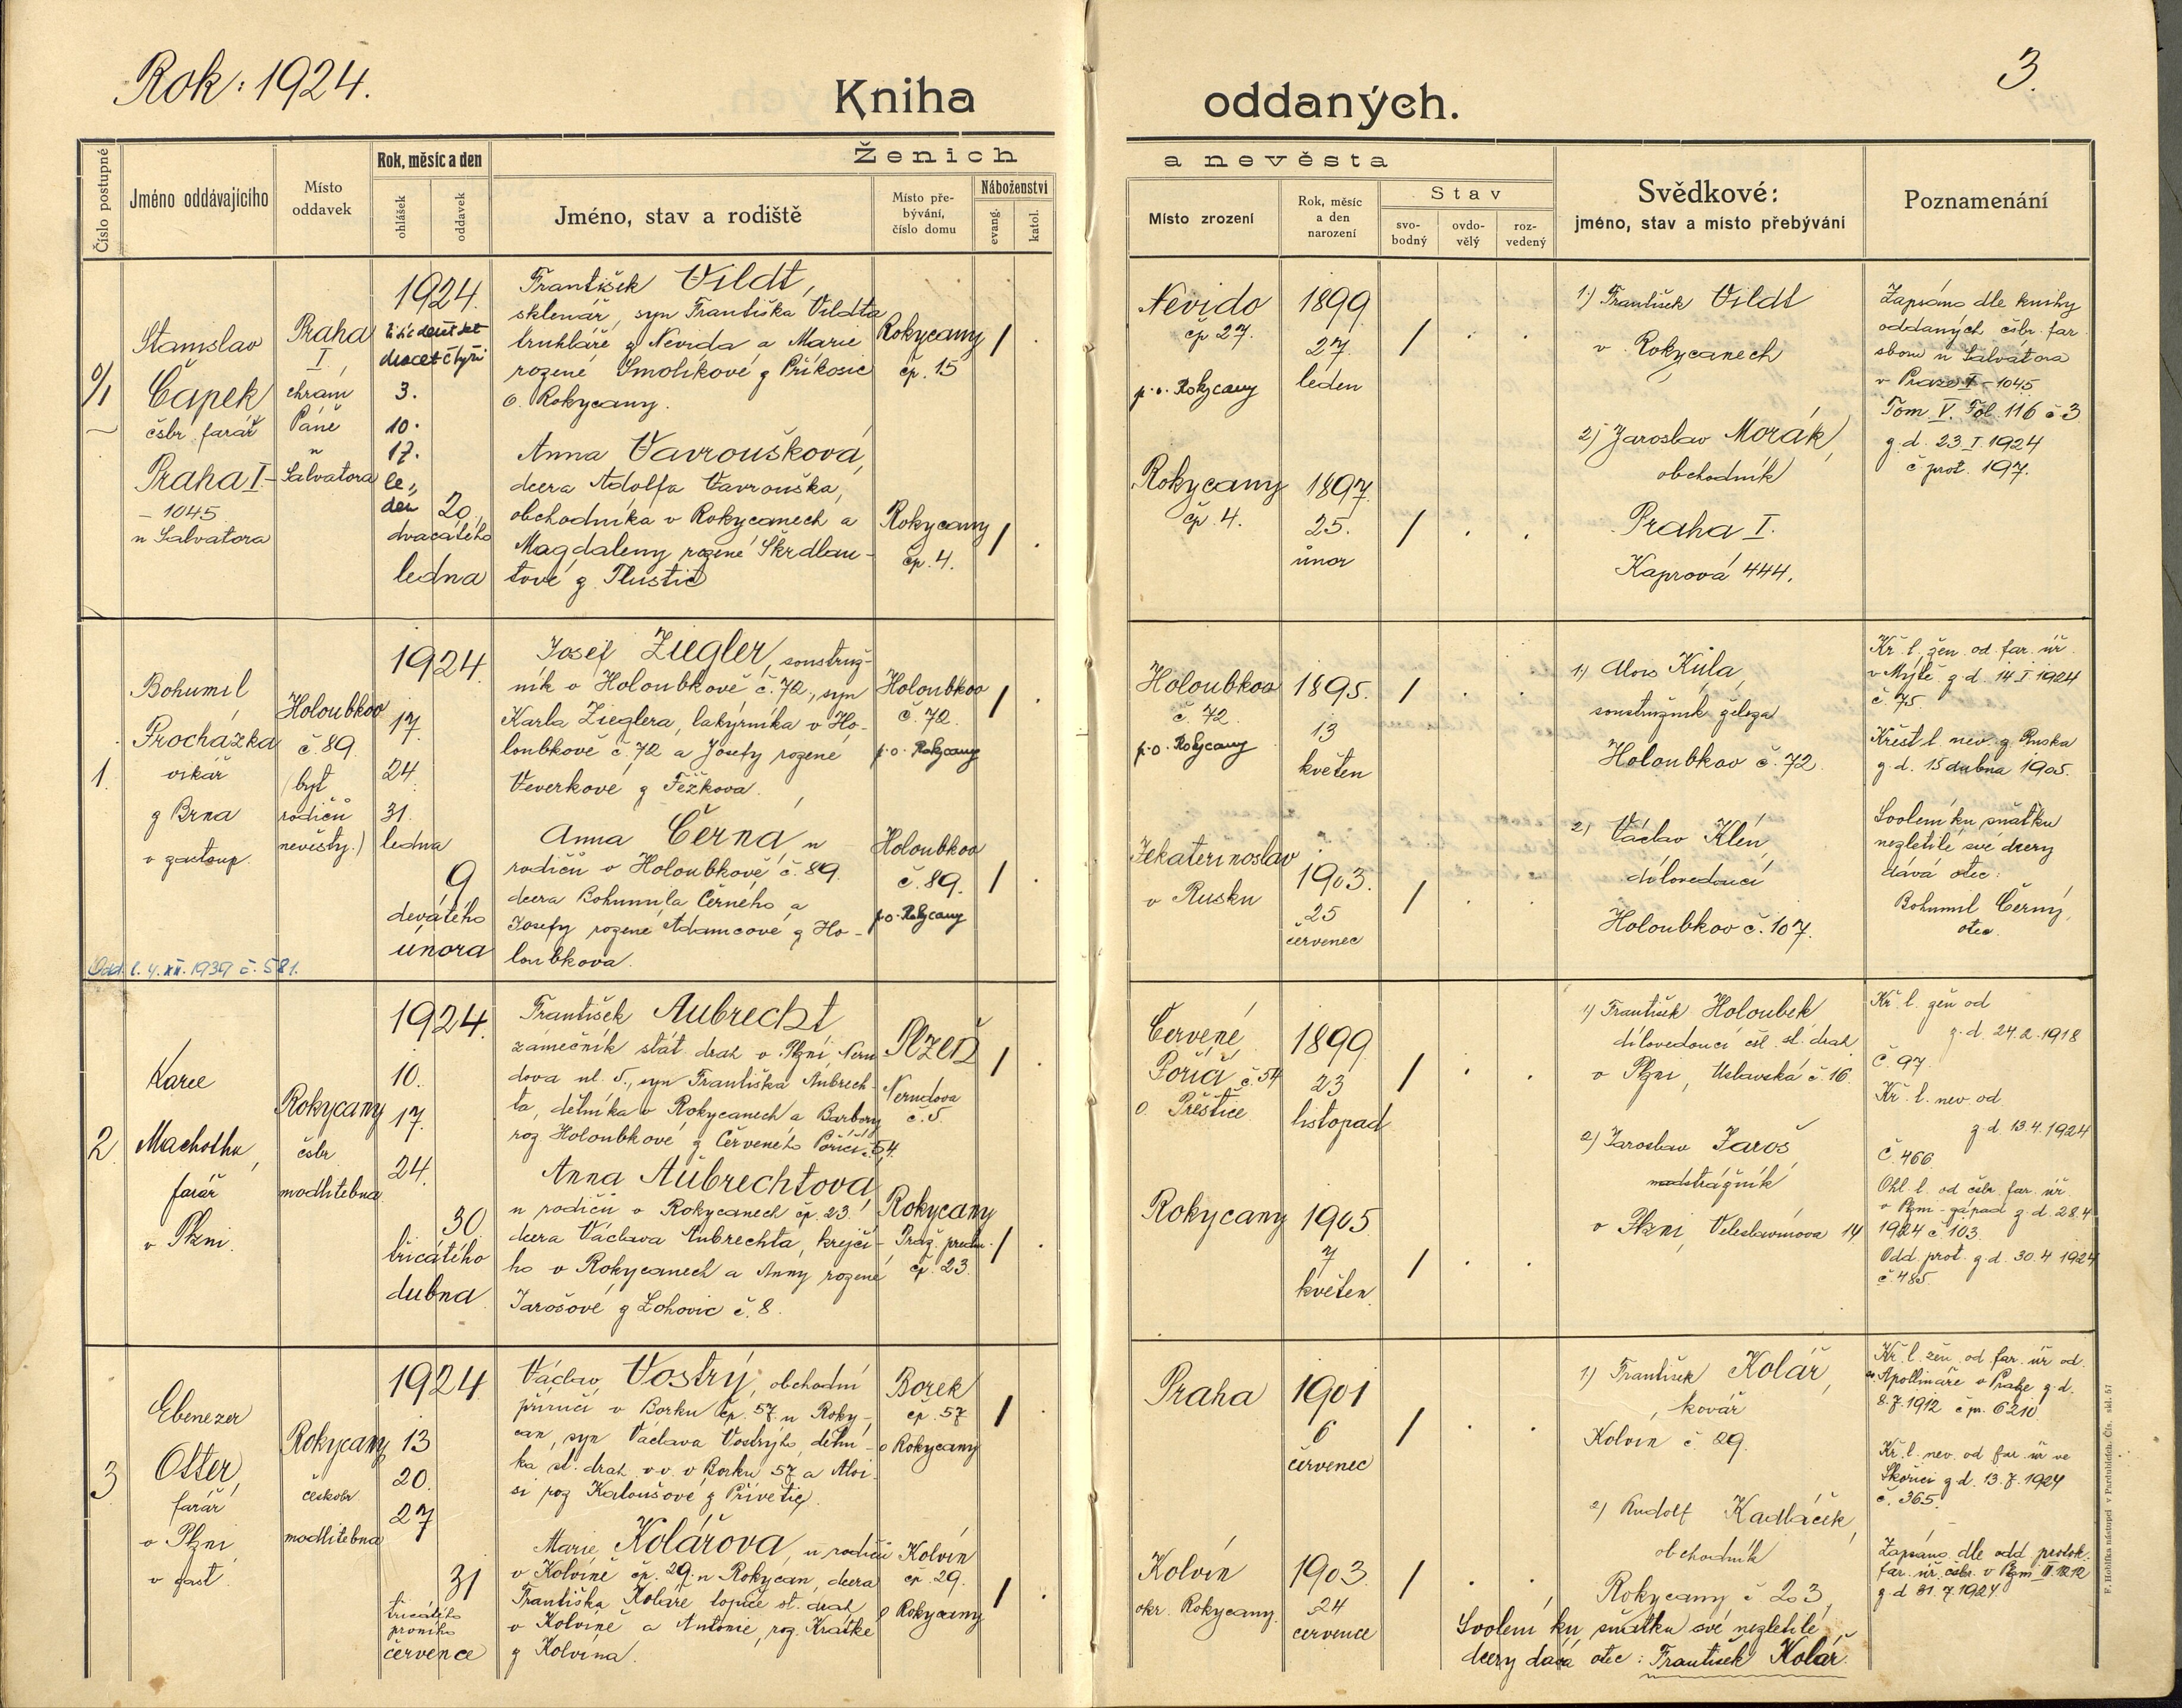 Rok: 1924.
Kniha oddaných.
3.
Číslo postupné
Jméno oddávajícího
Místo oddavek
Rok, měsíc a den
ohlášek
oddavek
Ženich a nevěsta
Jméno, stav a rodiště
Místo pře-
bývání,
číslo domu
Náboženství
evang.
katol.
Místo zrození
Rok, měsíc
a den
narození
Stav
svo-
bodný
ovdo-
vělý
roz-
vedený
Svědkové:
jméno, stav a místo přebývání
Poznamenání
0/1
Stanislav
Čapek
čsbr. farář
Praha I. –
– 1045
u Salvatora
Praha
I.
chrám
Páně
u
Salvatora
1924.
tisíc devět set
dvacet čtyři
3.
10.
17.
le-
den
20.
dvacátého
ledna
František Vildt,
sklenář, syn Františka Vildta
truhláře z Nevida a Marie
rozené Smolíkové z Příkosic
o. Rokycany.
Anna Vavroušková,
dcera Adolfa Vavrouška,
obchodníka v Rokycanech a
Magdaleny rozené Škrdlan-
tové z Tlustic
Rokycany
čp. 15
Rokycany
čp. 4.
Nevido
čp 27.
p. o. Rokycany
1899
27.
leden
Rokycany
čp. 4.
1897.
25.
únor
1.) František Vildt
v Rokycanech
2) Jaroslav Morák,
obchodník
Praha I.
Kaprová 444.
Zapsáno dle knihy
oddaných čsbr. far.
sboru u Salvátora
v Praze I – 1045
Tom V. Fol. 116 č 3
z. d. 23. I. 1924
č prot. 197.
1.
Bohumil
Procházka
vikář
z Brna
v zastoup.
Odd. l. 4. XII. 1939 č. 581.
Holoubkov
č. 89.
(byt
rodičů
nevěsty.)
1924.
17.
24.
31.
ledna
9
devátého
února
Josef Ziegler, soustruž-
ník v Holoubkově č. 72., syn
Karla Zieglera, lakýrníka v Ho-
loubkově č. 72 a Josefy rozené
Veverkové z Těžkova.
Anna Černá, u
rodičů v Holoubkově č. 89.
dcera Bohumila Černého a
Josefy rozené Adamcové z Ho-
loubkova.
Holoubkov
č. 72.
p. o. Rokycany
Holoubkov
č. 89.
p. o. Rokycany
Holoubkov
č. 72.
p. o. Rokycany
1895.
13
květen
Jekaterinoslav
v Rusku
1903.
25
červenec
1) Alois Kůla,
soustružník železa
Holoubkov č. 72.
2) Václav Klen,
dílovedoucí
Holoubkov č. 107.
Kř. l. žen. od. far. úř.
v Mýtě z d. 14. I 1924
č. 75.
Křest. l. nev. z Ruska
z. d. 15 dubna 1905.
Svolení ku sňatku
nezletilé své dcery
dává otec:
Bohumil Černý,
otec.
2.
Karel
Machotka,
farář
v Plzni.
Rokycany
čsbr.
modlitebna
1924.
10.
17.
24.
30.
třicátého
dubna
František Aubrecht
zámečník stát. drah v Plzni Neru-
dova ul. 5., syn Františka Aubrech-
ta, dělníka v Rokycanech a Barbory
roz Holoubkové z Červeného Poříčí č. 54.
Anna Aubrechtová,
u rodičů v Rokycanech čp. 23.
dcera Václava Aubrechta, krejčí-
ho v Rokycanech a Anny rozené
Jarošové z Lohovic č. 8.
Plzeň
Nerudova
č. 5.
Rokycany
Praž. předm.
čp. 23.
Červené
Poříčí č 54
o. Přeštice
1899.
23
listopad
Rokycany
1905
7
květen
1) František Holoubek
dílovedoucí čsl. st. drah
v Plzni, Uslavská č. 16.
2) Jaroslav Jaroš,
nadstrážník
v Plzni, Veleslavínova 14
Kř. l. žen od
z. d. 24. 2. 1918
Č. 97.
Kř. l. nev od
z d 13. 4. 1924
Č. 466.
Ohl. l. od čsbr. far. úř.
v Plzni – západ z d. 28. 4
1924 č 103.
Odd prot. z d. 30. 4 1924
č. 485.
3
Ebenezer
Otter,
farář
v Plzni
v zast.
Rokycany
českobr
modlitebna
1924
13
20.
27
31
třicátého
prvního
července
Václav Vostrý, obchodní
příručí v Borku čp. 57. u Roky-
can, syn Václava Vostrýho, dělní-
ka st. drah v. v. v Borku 57 a Aloi-
si roz Kaloušové z Přívětic.
Marie Kolářova, u rodičů
v Kolvíně čp. 29. u Rokycan, dcera
Františka Koláře topiče st. drah
v Kolvíně a Antonie, roz. Krátké
z Kolvína.
Borek
čp. 57
o Rokycany
Kolvín
čp. 29.
o Rokycany
Praha
1901
6
červenec
Kolvín
okr. Rokycany.
1903.
24
července
1) František Kolář,
kovář
Kolvín č. 29.
2) Rudolf Kadláček,
obchodník
Rokycany č 203,
Svolení ku sňatku své nezletilé
dcery dává otec: František Kolář.
Kř. l. žen. od far. úř od
sv. Apollináře v Praze z. d.
8. 7. 1912 č pr. 6210.
Kř. l. nev. od far úř ve
Skořici z d. 13. 7. 1924
č. 365.
Zapsáno dle odd protok.
far. úř. čsbr. v Plzni
z d 31. 7. 1924.
F. Hoblíka nástupci v Pardubicích. Čís. skl. 57